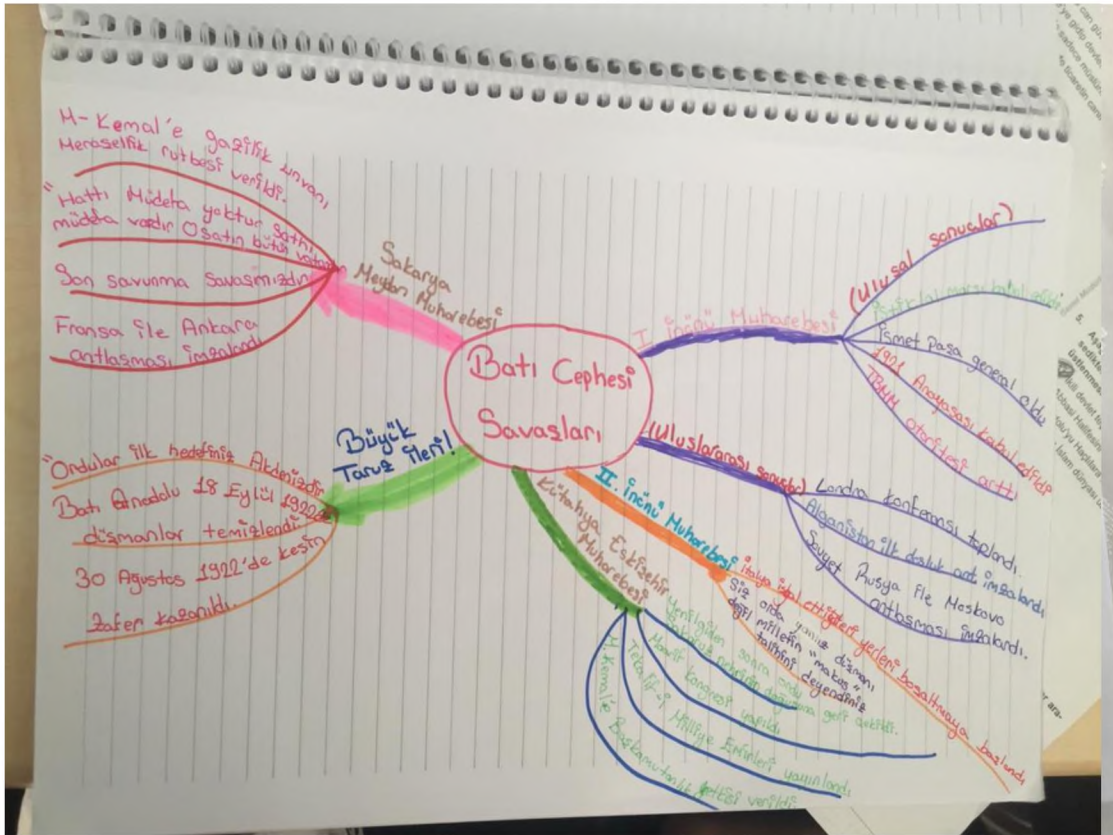 Batı Cephesi
Savaşları
I. İnönü Muharebesi
(Ulusal sonuçlar)
İstiklal marşı kabul edildi
İsmet Paşa general oldu
1921 Anayasası kabul edildi
TBMM otoritesi arttı
(Uluslararası sonuçlar)
Londra konferansı toplandı.
Afganistan ilk dostluk ant. imzalandı
Sovyet Rusya ile Moskova
antlaşması imzalandı.
II. İnönü Muharebesi
İtalya işgal ettiğleri yerleri boşaltmaya başlandı
Siz orda yanlız düşmanı
değil milletin "makus"
talihini deyendiniz
Kütahya Eskişehir
Muharebesi
Yenilgiden sonra ordu
Sakarya nehrinin doğusuna geri çekildi.
Maarif kongresi yapıldı
Tekalif-i Milliye Emirleri yayınlandı
M. Kemal'e Başkomutanlık yetkisi verildi.
Büyük
Taruz ileri!
"Ordular ilk hedefiniz Akdenizdir
Batı Anadolu 18 Eylül 1922'de
düşmanlar temizlendi
30 Agustos 1922'de kesin
Zafer kazanıldı.
Sakarya
Meydan Muharebesi
M- Kemal'e gazilik unvanı
Meraşellik rutbesi verildi.
"Hattı Müdefa yoktur Sathı
müdefa vardır O satıh bütün vatan
Son savunma savaşımızdır
Fransa ile Ankara
antlaşması imzalandı